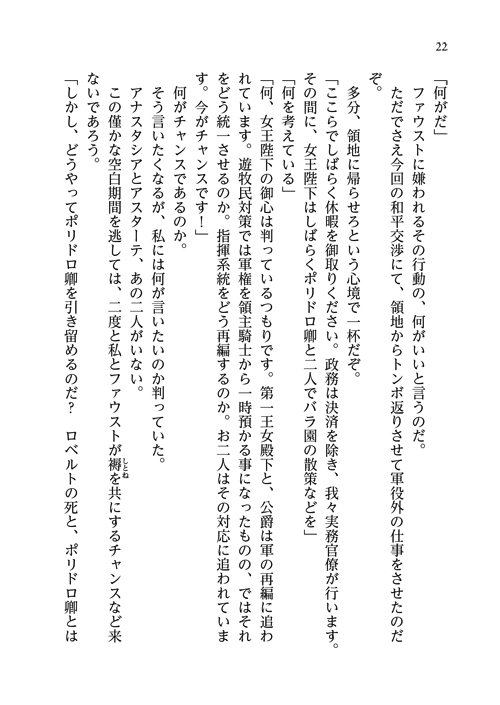 22
「何がだ」
　ファウストに嫌われるその行動の、何がいいと言うのだ。
　ただでさえ今回の和平交渉にて、領地からトンボ返りさせて軍役外の仕事をさせたのだ
ぞ。
　多分、領地に帰らせろという心境で一杯だぞ。
「ここらでしばらく休暇を御取りください。政務は決済を除き、我々実務官僚が行います。
その間に、女王陛下はしばらくポリドロ卿と二人でバラ園の散策などを」
「何を考えている」
「何、女王陛下の御心は判っているつもりです。第一王女殿下と、公爵は軍の再編に追わ
れています。遊牧民対策では軍権を領主騎士から一時預かる事になったものの、ではそれ
をどう統一させるのか。指揮系統をどう再編するのか。お二人はその対応に追われていま
す。今がチャンスです！」
　何がチャンスであるのか。
　そう言いたくなるが、私には何が言いたいのか判っていた。
　アナスタシアとアスターテ、あの二人がいない。
　この僅かな空白期間を逃しては、二度と私とファウストが褥を共にするチャンスなど来
しとね
ないであろう。
「しかし、どうやってポリドロ卿を引き留めるのだ？　ロベルトの死と、ポリドロ卿とは